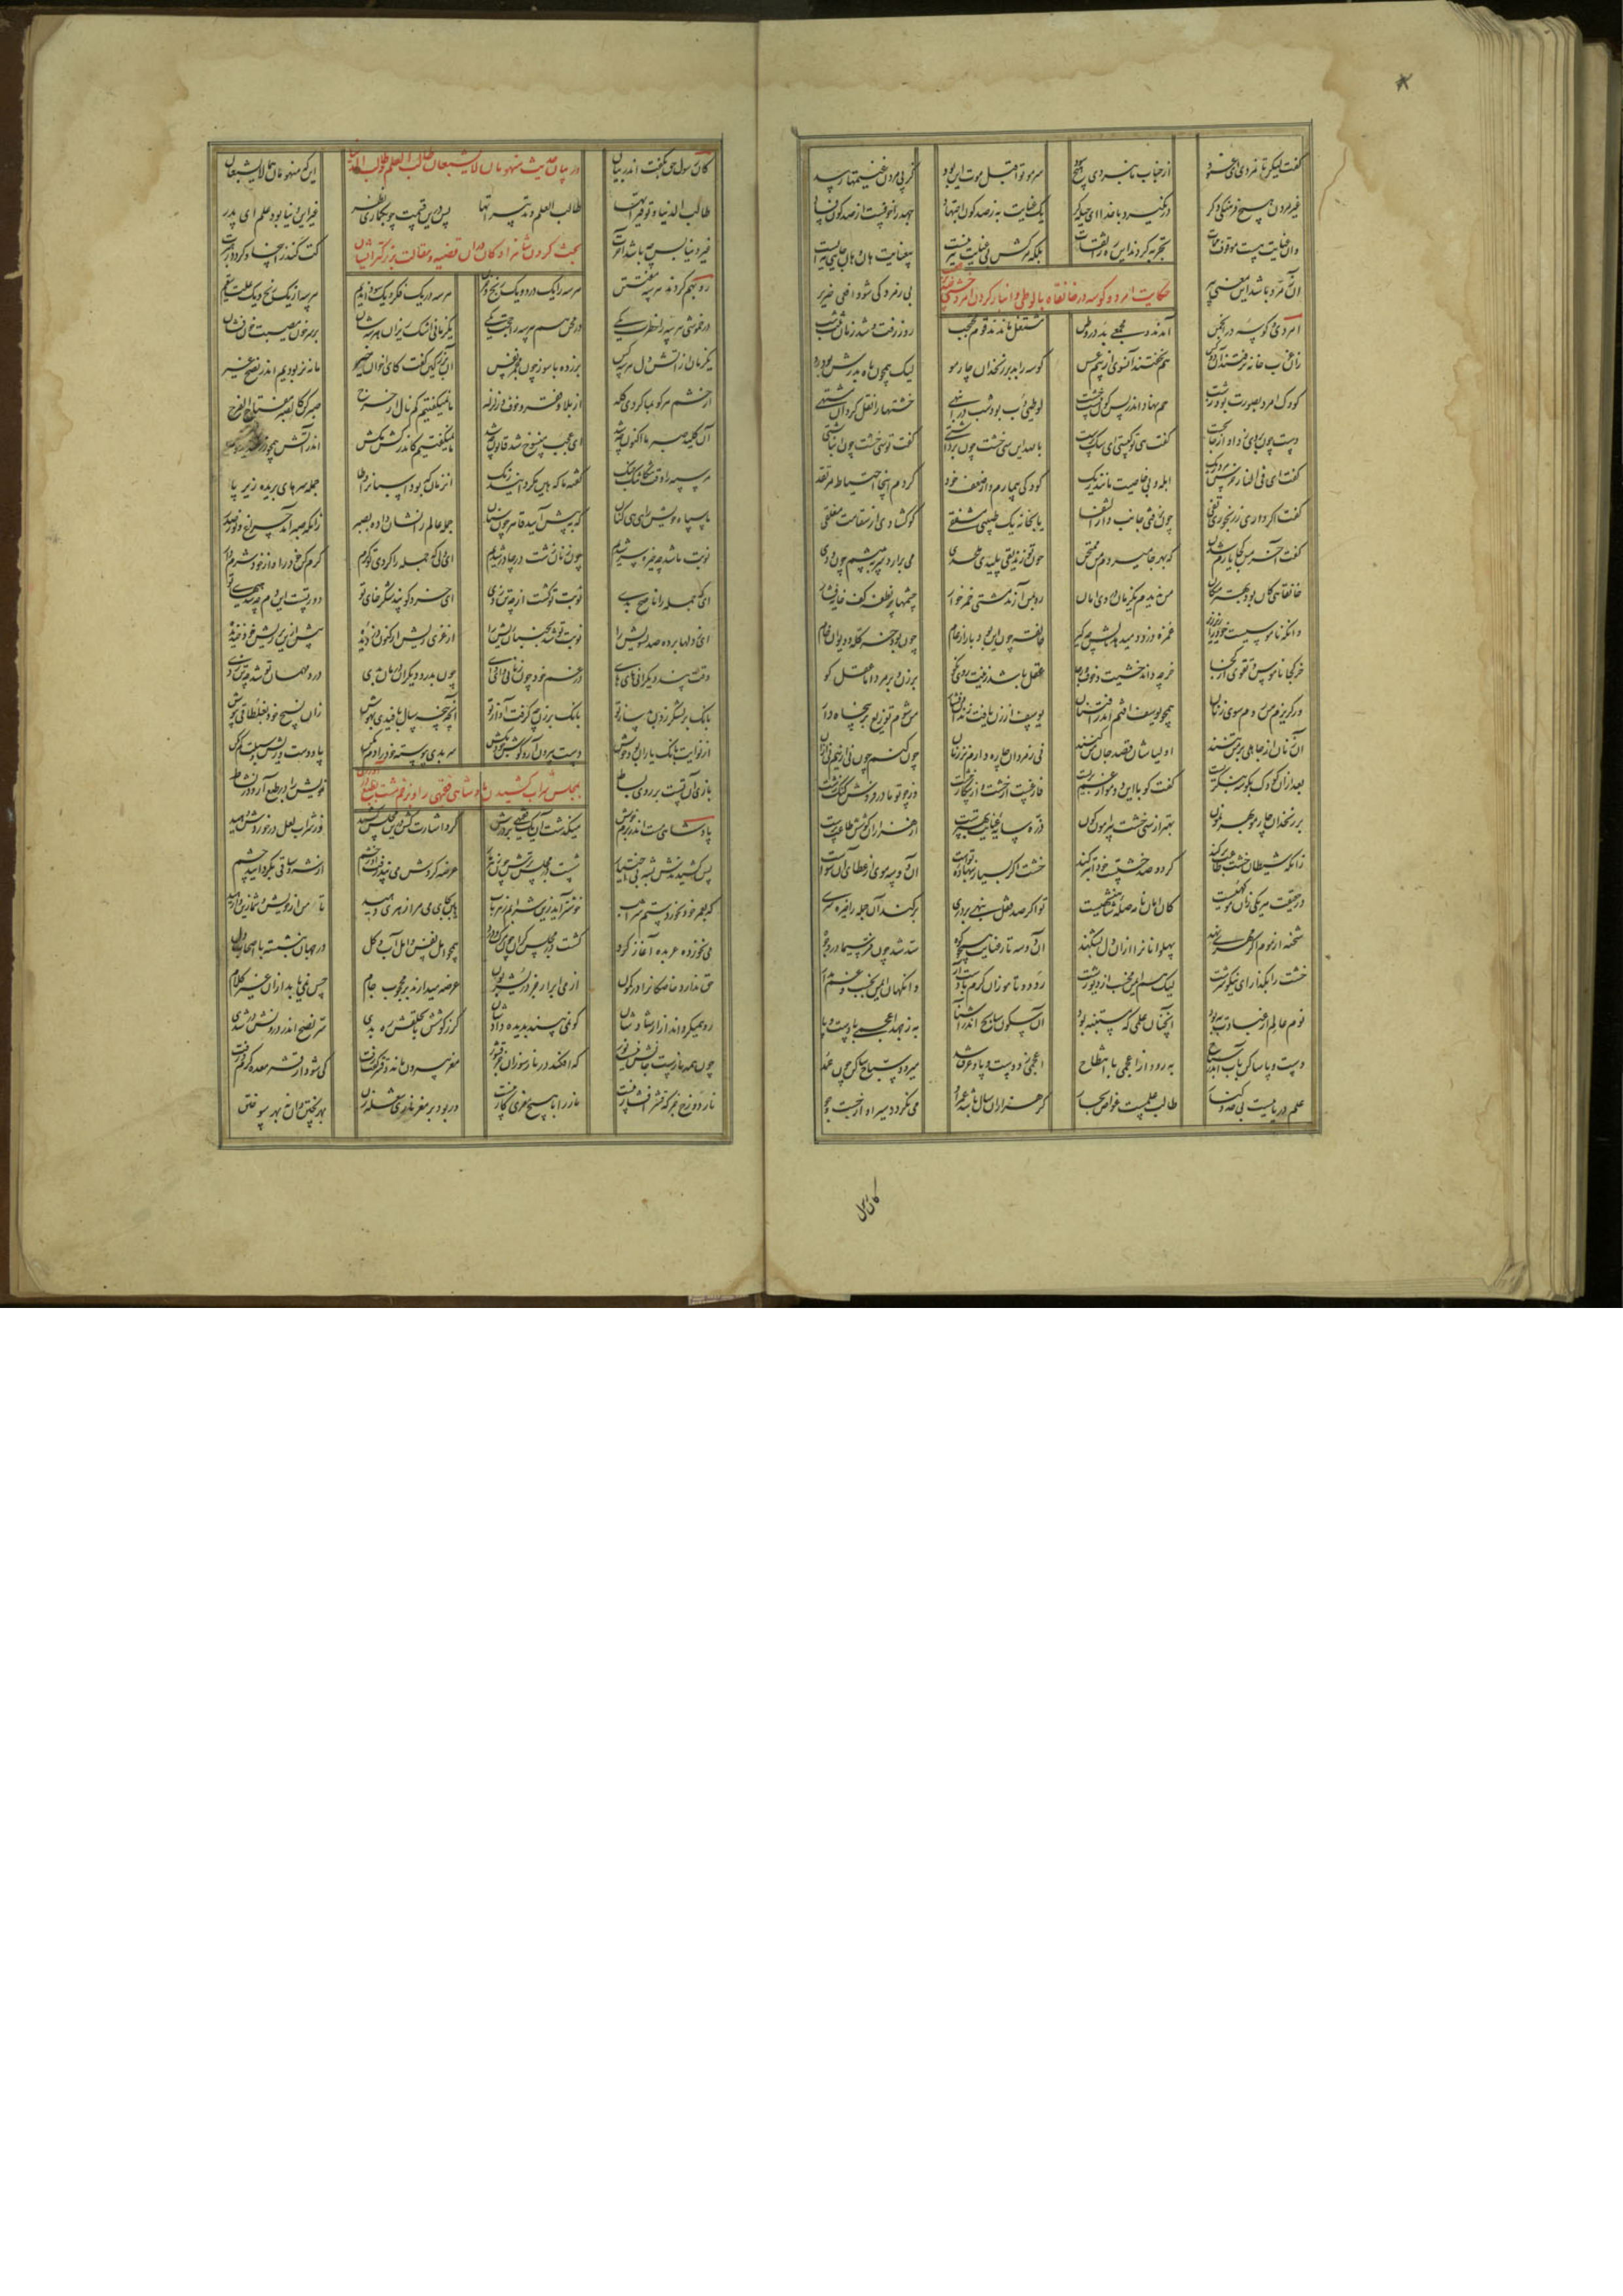 گفت لیکن تا نمردی ای عنود از جناب ما نبردی هیچ جود سر موتوا قبل موت این بود کز پی مردن غنیمتها رسد
غیر مردن هیچ فرهنگی دگر در نگیرد با خدا ای حیله گر یک عنایت به ز صد گون اجتهاد جهد را خوفست از صد گون فساد
وان عنایت هست موقوف ممات تجربه کردند این ره را ثقات بلکه مرگش بی عنایت نیز نیست بی عنایت هان و هان جایی مایست
آن زمرد باشد این افعی پیر بی زمرد کی شود افعی ضریر
حکایت امرد و کوسه در خانقاه با لوطی و انبار کردن امرد خشت
امردی و کوسه در انجمن آمدند و مجمعی بد در وطن مشتغل ماندند قوم منتجب روز رفت و شد زمانه ثلث شب
زان عزب خانه نرفتند آن دو کس هم بخفتند آن سو از بیم عسس کوسه را بد بر زنخدان چار مو لیک همچون ماه بدرش بود رو
کودک امرد بصورت بود زشت هم نهاد اندر پس کون بیست خشت لوطیی دب برد شب در انبهی خشتها را نقل کرد آن مشتهی
دست چون بر وی زد او از جا بجست گفت هی تو کیستی ای سگ پرست
گفت تو سی خشت چون انباشتی
کودکی بیمارم و از ضعف خود کردم اینجا احتیاط و مرتقد
گفت اگر داری ز رنجوری تفی چون نرفتی جانب دار الشفا یا بخانه یک طبیبی مشفقی کو گشادی از سقامت مغلقی
گفت آخر من کجا یارم شدن که بهر جا میروم من ممتحن چون تو زندیقی پلیدی ملحدی می برآرد سر به پیشم چون ددی
خانقاهی کان بود بهتر مکان من ندیدم یک زمان در وی امان رو بمن آرند مشتی خمر خوار چشمها پر نطفه کف خایه فشار
وانکه ناموسیست خود از زیر زیر غمزه دزدد میدهد مالش به کیر خانقه چون این بود بازار عام چون بود خر گله و دیوان خام
خر کجا ناموس و تقوی از کجا خر چه داند خشیت و خوف و رجا عقل باشد بر زن و بر مرد اما عقل کو
ور گریزم من روم سوی زنان همچو یوسف افتم اندر افتتان یوسف از زن یافت زندان و فشار من شوم توزیع بر پنجاه دار
آن زنان از جاهلی بر من تنند اولیاشان قصد جان من کنند نی ز مردان چاره دارم نز زنان چون کنم چون نی ازینم نی ازان
بعد ازان کودک بکوسه بنگریست گفت کو با این دو مو از غم بریست فارغست از خشت و از پیکار خشت وز چو تو مادر فروش کنگ زشت
بر زنخدان چار مو بهر نمون بهتر از سی خشت پیرامون کون ذره سایه عنایت بهترست از هزاران کوشش طاعت پرست
زانکه شیطان خشت طاعت بر کند گر دو صد خشتست خود را ره کند خشت اگر بسیار بنهاده تواست آن دو سه موی از عطای آن سو است
در حقیقت هر یکی مو زان کهیست کان امان نامه صله شاهنشهیست تو اگر صد قفل بنهی بر دری بر کند آن جمله را خیره سری
شحنه از موم اگر مهری نهد پهلوانانرا ازان دل بشکهد آن دو سه تار عنایت همچو کوه سد شد چون فر سیما در وجوه
خشت را مگذار ای نیکو سرشت لیک هم ایمن مخسب از دیو زشت رو دو تا مو زان کرم با دست آر وانگهان ایمن بخسب و غم مدار
نوم عالم از عبادت به بود آنچنان علمی که مستنبه بود آن سکون سابح اندر آشنا به ز جهد اعجمی با دست و پا
به رود از اعجمی با انتطاح اعجمی زد دست و پا و غرق شد میرود سباح ساکن چون عمد
علم دریاییست بی حد و کنار طالب علمست غواص بحار گر هزاران سال باشد عمر او می نگردد سیر او از جست و جو
کان رسول
کان رسول حق بگفت اندر بیان اینکه منهومان هما لا یشبعان
در بیان حدیث منهومان لا یشبعان طالب العلم و طالب الدنیا
طالب الدنیا و توفیراتها طالب العلم و تدبیراتها پس درین قسمت چو بگماری نظر غیر این دنیا بود علم ای پدر
غیر دنیا پس چه باشد آخرت کت کند زاینجا و گردد رهبرت
بحث کردن شاهزادگان در آن قضیه و مقالت بزرگتر ایشان
رو بهم کردند هر سه مفتتن هر سه را یک درد و یک رنج و حزن هر سه در یک فکر و یک سودا ندیم هر سه از یک رنج و یک علت سقیم
در خموشی هر سه را خطرت یکی در سخن هم هر سه را حجت یکی یک زمانی اشک ریزان هر سه شان بر سر خوان مصیبت خون فشان
یک زمان از آتش دل هر سه کس بر زده با سوز چون مجمر نفس آن بزرگین گفت کای اخوان خیر ما نه نر بودیم اندر نصح غیر
از حشم هر کو بما کردی گله از بلا و فقر و خوف و زلزله ما همیگفتیم کم نال از حرج صبر کن کالصبر مفتاح الفرج
آن کلید صبر ما اکنون چه شد ای عجب منسوخ شد قانون چه شد ما نمیگفتیم کاندر کش مکش اندر آتش همچو زر خندید خوش
مر سپه را وقت تنگاتنگ جنگ گفته ما که هین مگردانید رنگ آن زمان که بود اسپانرا وطا جمله سرهای بریده زیر پا
ما سپاه خویش را هی هی کنان که به پیش آیید قاهر چون سنان جمله عالم را نشان داده بصبر زانکه صبر آمد چراغ و نور صدر
نوبت ما شد چه خیره سر شدیم چون زنان زشت در چادر شدیم ای دلی که جمله را کردی تو گرم گرم کن خود را و از خود دار شرم
ای زبان که جمله را ناصح بدی نوبت تو گشت از چه تن زدی ای خرد کو پند شکر خای تو دور تست این دم چه شد هیهای تو
ای ز دلها برده صد تشویش را نوبت تو شد بجنبان ریش را از غری ریش ار کنون دزدیده پیش ازین بر ریش خود خندیده
وقت پند دیگرانی های های در غم خود چون زنانی وای وای چون بدرد دیگران درمان بدی درد مهمان تو شد چه تن زدی
بانگ بر لشکر زدن بد ساز تو بانگ بر زن چه گرفت آواز تو آنچه پنجه سال بافیدی بهوش زان نسیج خود بغلطاقی بپوش
دست بیرون آر و گوش خود بکش سر بدی پیوسته خود را دم مکن پا و دست و ریش و سبلت گم مکن
بازی آن تست بر روی بساط خویش را در طبع آر و در نشاط
بمجلس شراب کشیدن پادشاهی فقیهی را
پادشاهی مست اندر بزم خوش میگذشت آن یک فقیهی بر درش کرد اشارت کش درین مجلس کشید وز شراب لعل در خوردش دهید
پس کشیدندش بشه بی اختیار شست در مجلس ترش چون زهر مار عرضه کردش می نپذرفت او بخشم از شه و ساقی بگردانید چشم
که بعمر خود نخوردستم شراب خوشتر آید زین شرابم زهر ناب هین بجای می مرا زهری دهید تا من از خویش و شما زین وارهید
می نخورده عربده آغاز کرد گشت در مجلس گران چون مرگ و درد همچو اهل نفس و اهل آب و گل در جهان بنشسته با اصحاب دل
حق ندارد خاصگانرا در کمون از می ابرار جز در یشربون عرضه میدارند بر محجوب جام حس نمی یابد ازان غیر کلام
رو همیگرداند از ارشادشان کو نمی بیند بدیده دادشان گر ز گوشش تا بحلقش ره بدی سر نصح اندر درونش در شدی
چون همه نارست جانش نیست نور که افکند در نار سوزان جز قشور مغز بیرون ماند و قشر گفت رفت کی شود از قشر معده گرم و زفت
نار دوزخ جز که قشر افشار نیست نار را با هیچ مغزی کار نیست ور بود بر مغز ناری شعله زن بهر پختن دان نه بهر سوختن